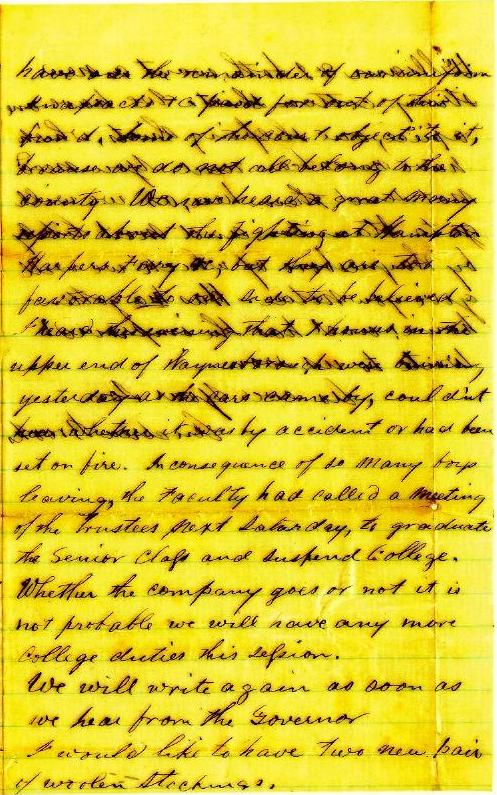 have us the remainder of our uniform
to be paid for out of this
fund, some of the county object to it,
because we do not all belong to the
county. We have heard a great many
reports about the fighting at Hampton
Harpers Ferry &c, but they are, too
favorable to our side to be believed.
I heard this evening that houses in the
upper end of Waynesborough were burning
yesterday as the cars came by, couldn't
hear whether it was by accident or had been
set on fire. In consequence of so many boys
leaving, the Faculty had called a meeting
of the Trustees next Saturday, to graduate
the Senior Class and suspend College.
Whether the company goes or not it is
not probable we will have any more
college duties this session.
We will write again as soon as
we hear from the Governor
I would like to have two new pair
of woolen stockings.